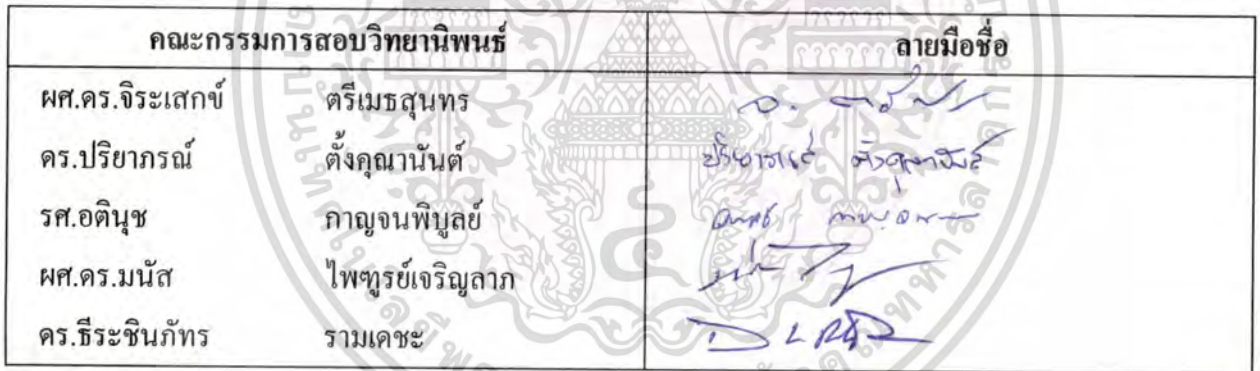 คณะกรรมการสอบวิทยานิพนธ์ ลายมือชื่อ
ผศ.ดร.จิระเสกข์ ตรีเมธสุนทร
ดร.ปริยาภรณ์ ตั้งคุณานันต์ ปริยาภรณ์ ตั้งคุณานันต์
รศ.อตินุช กาญจนพิบูลย์
ผศ.ดร.มนัส ไพฑูรย์เจริญลาภ
ดร.ธีระชินภัทร รามเดชะ